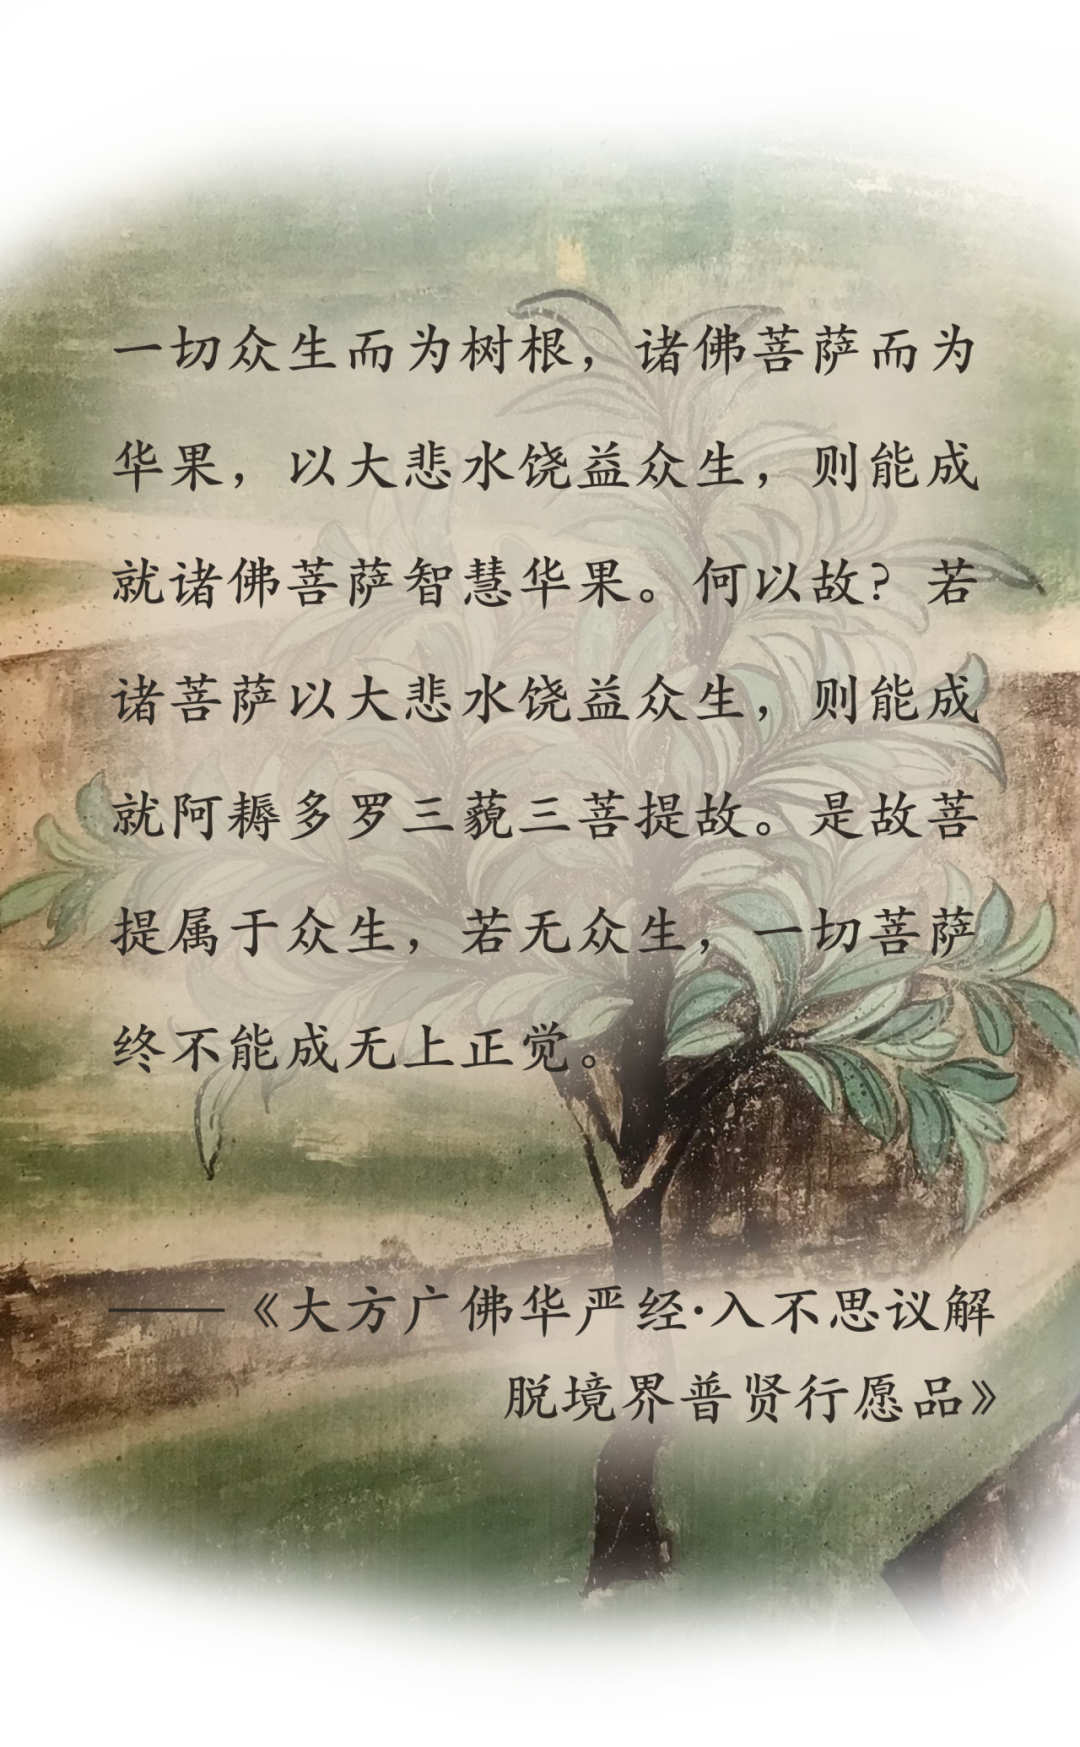 一切众生而为树根，诸佛菩萨而为
华果，以大悲水饶益众生，则能成
就诸佛菩萨智慧华果。何以故？若
诸菩萨以大悲水饶益众生，则能成
就阿耨多罗三藐三菩提故。是故菩
提属于众生，若无众生，一切菩萨
终不能成无上正觉。
——《大方广佛华严经·入不思议解
脱境界普贤行愿品》